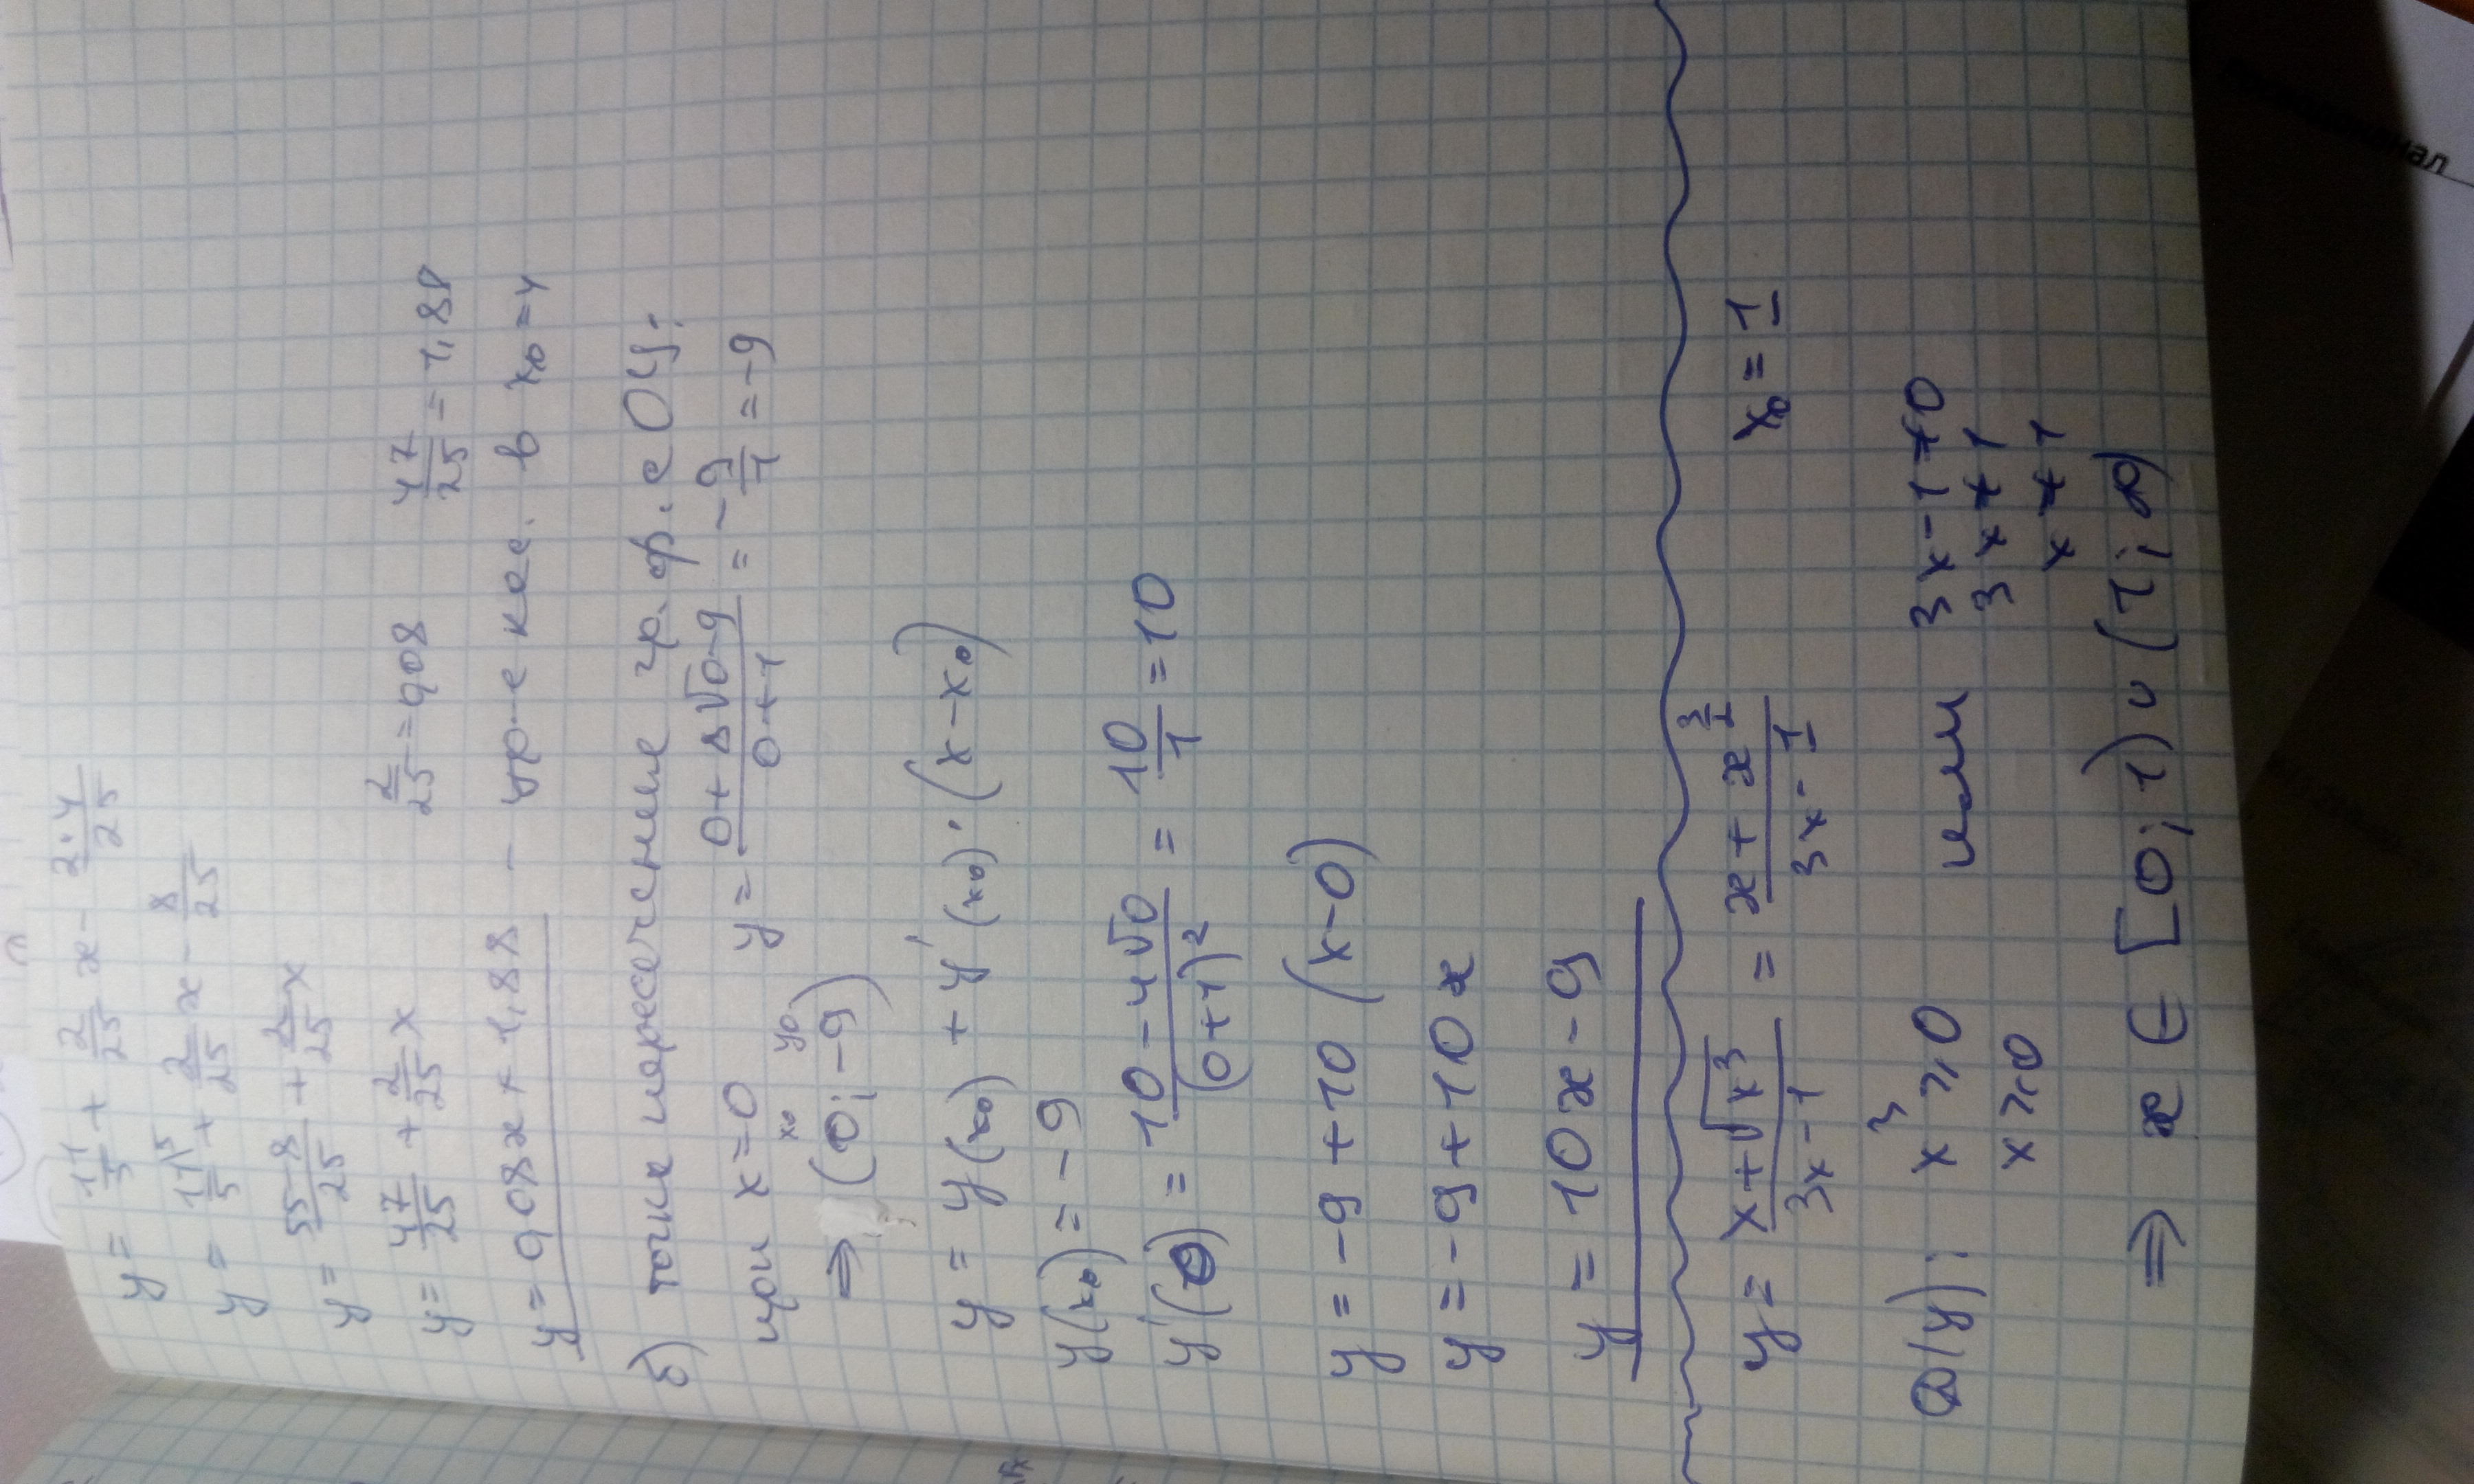 y = 11/5 + 2/25 x - 2·4/25
y = 11/5 + 2/25 x - 8/25
y = 55-8/25 + 2/25 x
y = 47/25 + 2/25 x 2/25 = 0,08 47/25 = 1,88
y = 0,08x + 1,88 - ур-е кас. в x₀ = 4
б) точки пересечение гр. ф. с ОУ:
при x = 0 y = 0 + 8√0 - 9/0 + 1 = -9/1 = -9
⇒ (0; -9) x₀ y₀
y = y(x₀) + y'(x₀)·(x - x₀)
y(x₀) = -9
y'(0) = 10 - 4√0/(0+1)² = 10/1 = 10
y = -9 + 10 (x - 0)
y = -9 + 10x
y = 10x - 9
y = x + √x³/3x - 1 = x + x^3/2/3x - 1 x₀ = 1
D(y): x³ ≥ 0 или 3x - 1 ≠ 0
x ≥ 0 3x ≠ 1
x ≠ 1
⇒ x ∈ [0; 1) ∪ (1; ∞)
нал